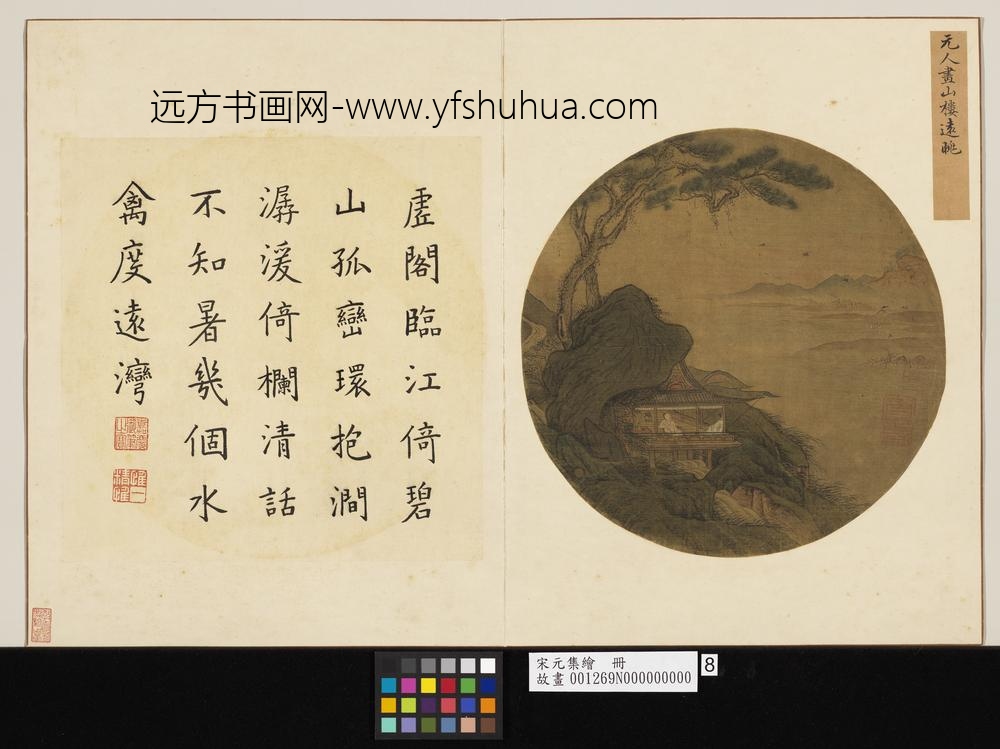 远方书画网-www.yfshuhua.com
元人畫山樓遠眺
虗閣臨江倚碧
山孤巒環抱澗
潺湲倚欄清話
不知暑幾個水
禽度遠灣
宋元集繪 冊
故畫 001269N000000000
8